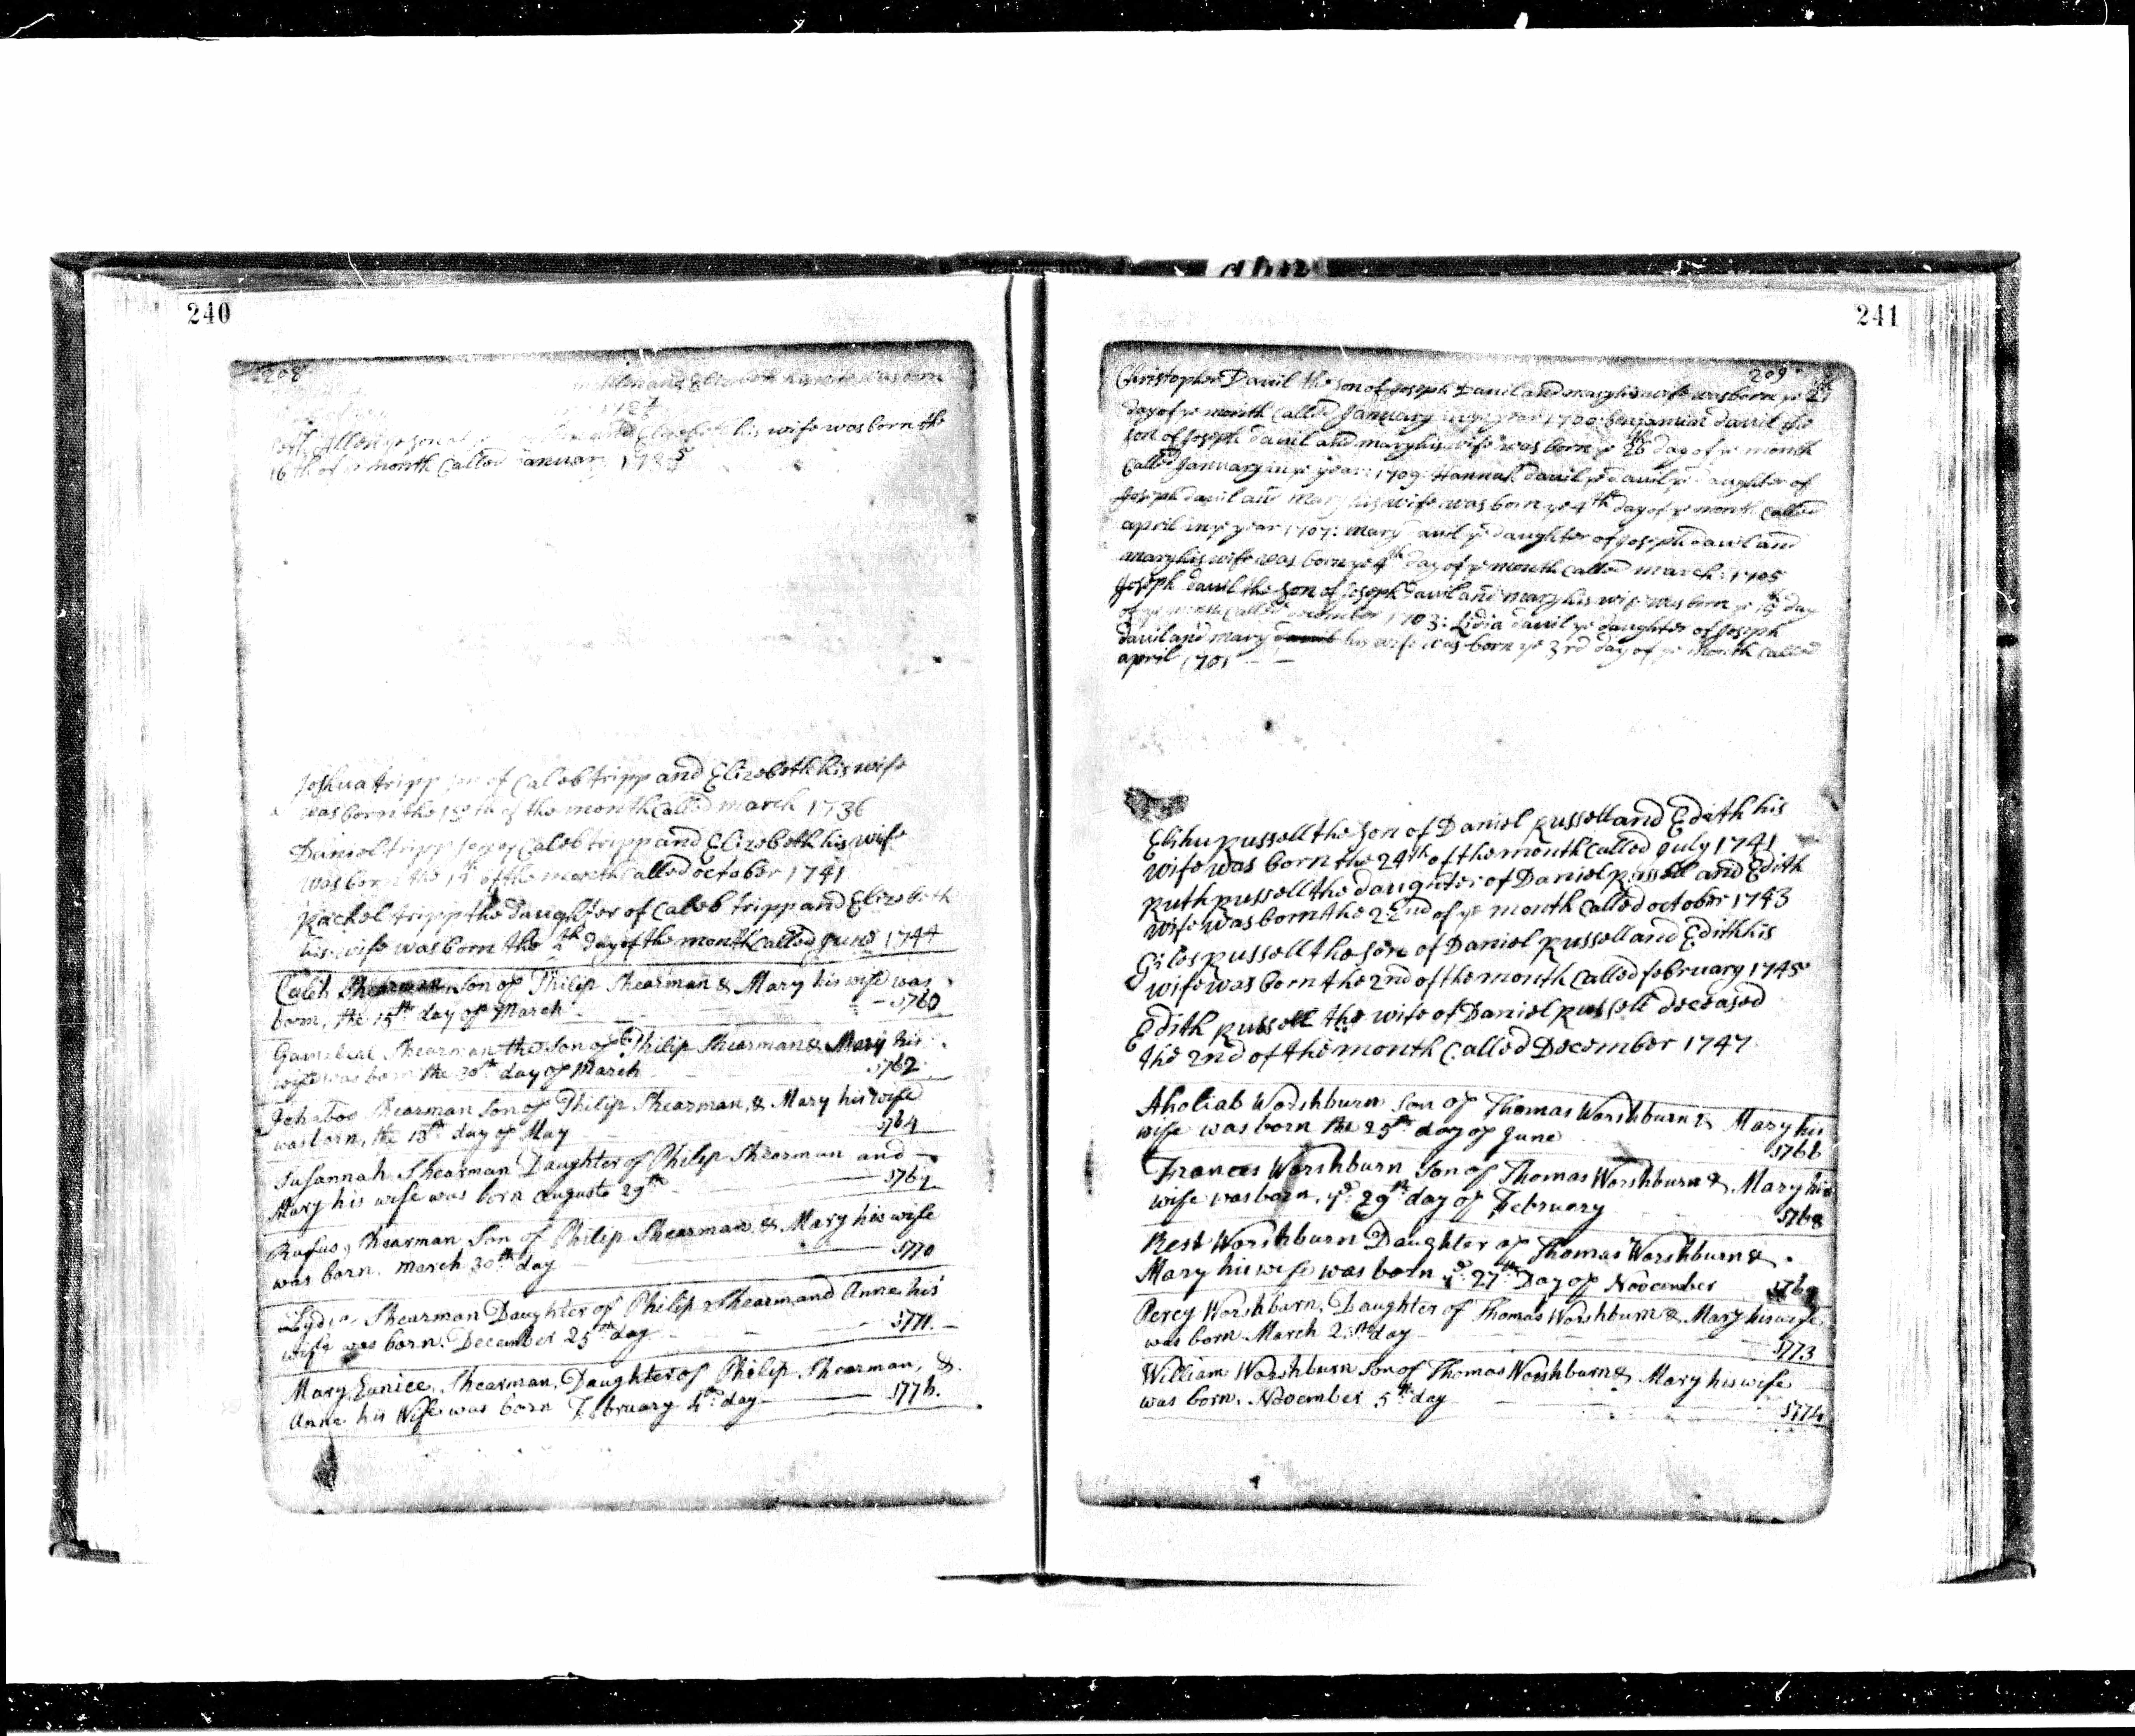 240
208
and Elizabeth his wife was born
Seth Allen ye son of and Elizabeth his wife was born the
16th of month Called January
Joshua tripp son of Calob tripp and Elizebeth his wife
was born the of the month Called march 1736
Daniol tripp son of Calob tripp and Elizebeth his wife
was born the of the month Called october 1741
Rachol tripp the daughter of Calob tripp and Elizebeth
his wife was born the day of the month Called June 1744
Caleb Shearman Son of Philip Shearman & Mary his wife was
born, the 15th day of March 1760
Gamalial Shearman the Son of Philip Shearman & Mary his
wife was born the 30th day of March 1762
Ichabod Shearman Son of Philip Shearman, & Mary his wife
was born, the 13th day of May 1764
Susannah Shearman Daughter of Philip Shearman and
Mary his wife was born Auguste 29th 1767
Rufus, Shearman Son of Philip Shearman, & Mary his wife
was born. March 30th day 1770
Lydia Shearman Daughter of Philip Shearm,and Anne his
wife was born. December 25th day 1771.
Mary Eunice, Shearman, Daughter of Philip, Shearman, &.
Anne his Wife was born February 4th day 1776.
241
209
Christopher Davil the son of Joseph Davil and mary his wife was born ye
day of ye month Called January in ye year 1700: benjamin davil the
son of Joseph davil and mary his wife was born ye 26 day of ye month
Called January in ye year: 1709: Hannah davil ye davil ye daughter of
Joseph davil and mary his wife was born ye 4th day of ye month Called
april in ye year 1707: mary davil ye daughter of Joseph davil and
mary his wife was born ye 4th day of ye month Called march: 1705
Joseph davil the son of Joseph davil and mary his wife was born ye day
of ye month Called 1703: Lidia davil ye daughter of Joseph
davil and mary davil his wife was born ye 3rd day of ye month Called
april 1701
Elihu Russell the son of Daniol Russell and Edith his
wife was born the 24th of the month Called July 1741
Ruth Russell the daughter of Daniol Russell and Edith
wife was born the 22nd of ye month Called october 1743
Gilos Russell the son of Daniol Russell and Edith his
wife was born the 2nd of the month Called february 1745
Edith Russell the wife of Daniol Russell deceased
the 2nd of the month Called December 1747
Aholiab Worshburn Son of Thomas Worshburn & Mary his
wife was born the 25th day of June 1766
Frances Worshburn Son of Thomas Worshburn & Mary his
wife was born. ye 29th day of February 1768
Rest Worshburn Daughter of Thomas Worshburn &
Mary his wife was born ye 27th Day of November 1769
Percy Worshburn, Daughter of Thomas Worshburn & Mary his wife
was born March day 1773
William Worshburn Son of Thomas Worshburn & Mary his wife
was born. November 5th day 1774